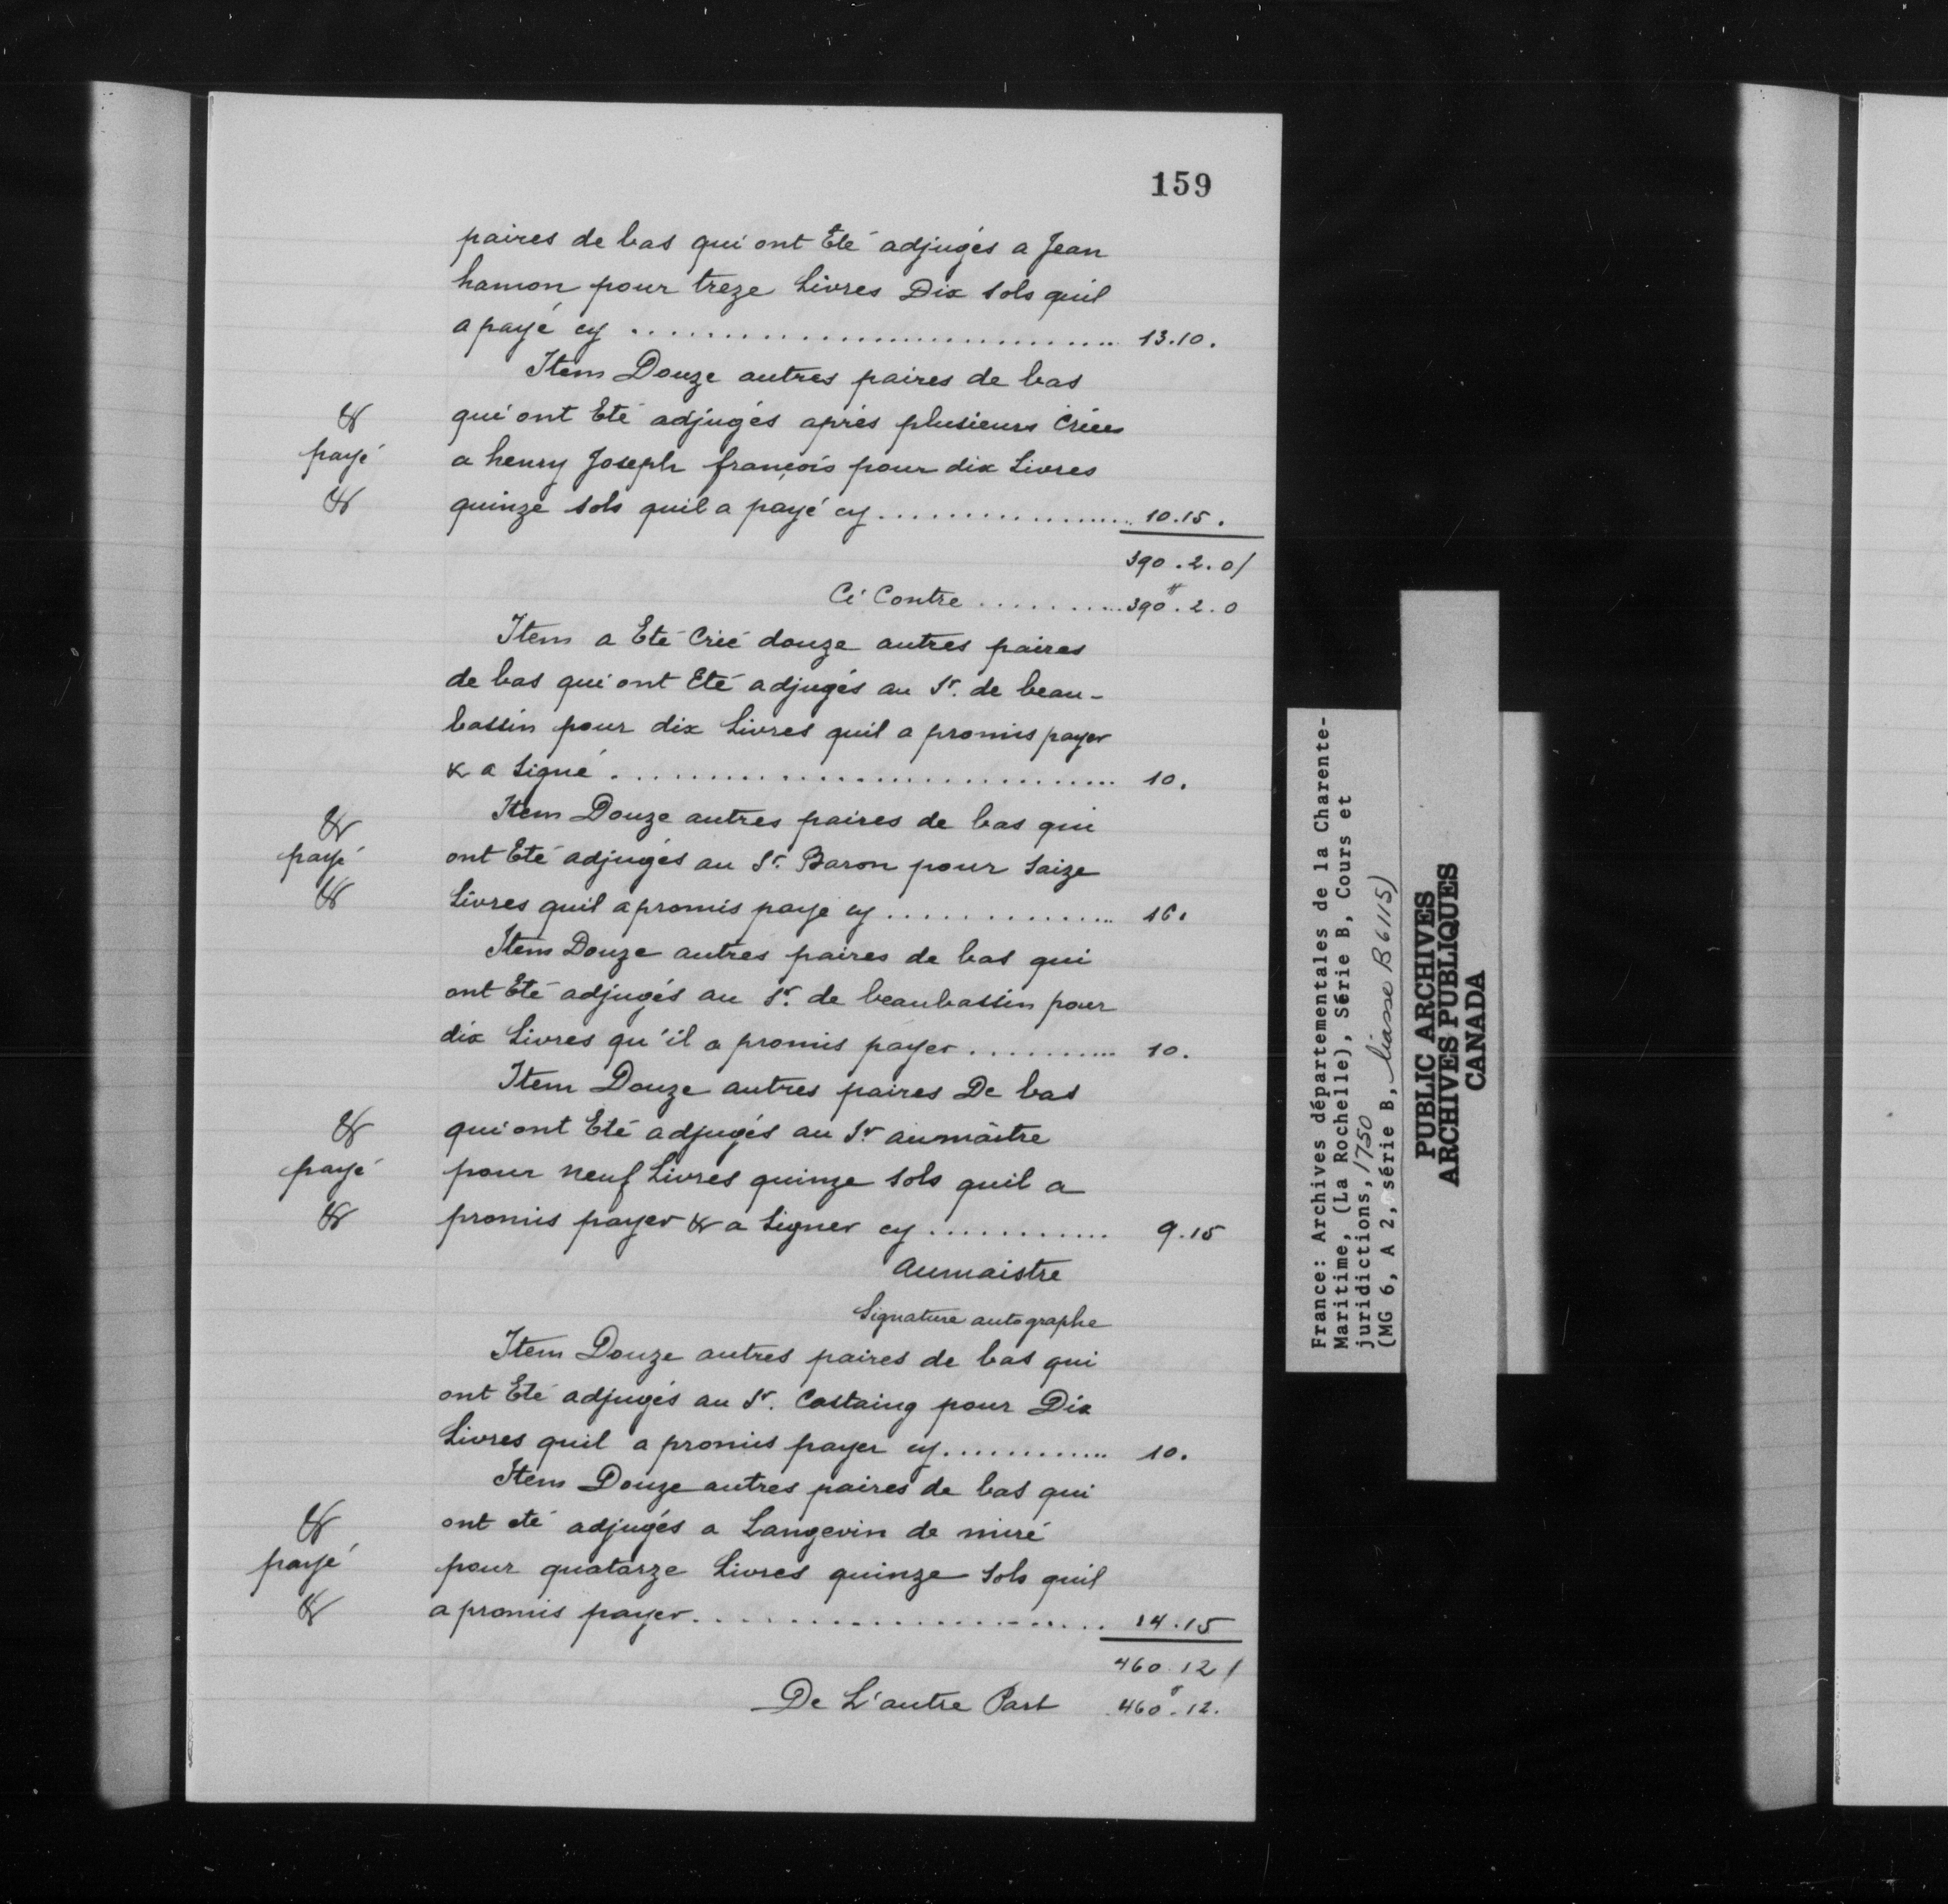 159
paires de bas qui ont Eté adjugés a Jean
hamon pour treze Livres Dix sols quil
a payé cy .............................. 13.10.
Item Douze autres paires de bas
& qui ont Eté adjugés aprés plusieurs Criées
payé a henry Joseph françois pour dix Livres
& quinze sols quil a payé cy .................. 10.15.
390.2.0/
Ci Contre .......... 390#.2.0
Item a Eté Crié douze autres paires
de bas qui ont Eté adjugés au Sr. de beau-
bassin pour dix Livres quil a promis payer
& a Signé .............................. 10.
& Item Douze autres paires de bas qui
payé ont Eté adjugés au Sr. Baron pour Saize
& Livres quil a promis payé cy .............. 16.
Item Douze autres paires de bas qui
ont Eté adjugés au Sr. de beaubassin pour
dix Livres qu'il a promis payer .......... 10.
Item Douze autres paires De bas
& qui ont Eté adjugés au Sr aumaître
payé pour neuf Livres quinze sols quil a
& promis payer & a Signer cy ............ 9.15
Aumaistre
Signature autographe
Item Douze autres paires de bas qui
ont Eté adjugés au Sr. Castaing pour Dix
Livres quil a promis payer cy ............ 10.
Item Douze autres paires de bas qui
& ont eté adjugés a Langevin de miré
payé pour quatarze Livres quinze sols quil
& a promis payer ........................ 14.15
460.12/
De L'autre Part 460.12.
France: Archives départementales de la Charente-
Maritime, (La Rochelle), Série B, Cours et
juridictions, 1750
(MG 6, A 2, série B, liasse B 6115)
PUBLIC ARCHIVES
ARCHIVES PUBLIQUES
CANADA